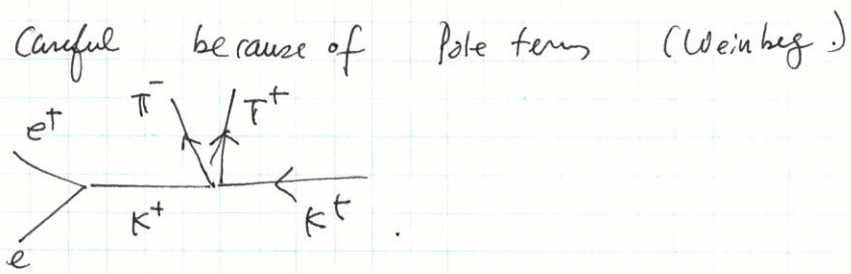 Careful because of Pole terms (Weinberg.)
π⁻ π⁺
e⁺
K⁺ K⁺
e